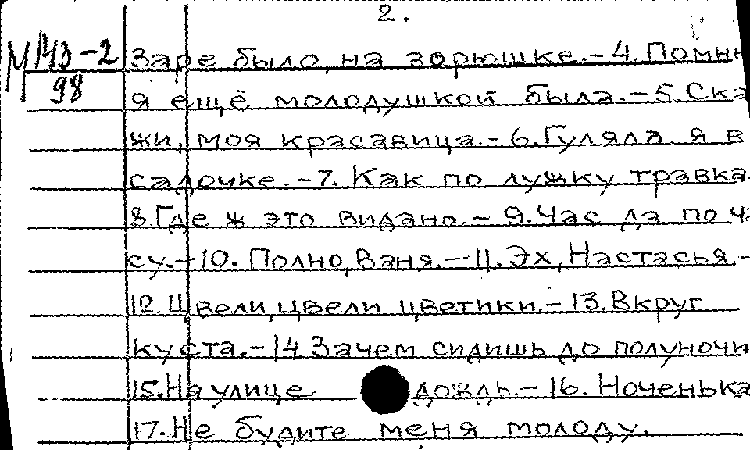 2.
М 143-2 Заре было, на зорюшке.-4. Помню
98 я ещё молодушкой была.-5. Ска
жи, моя красавица.-6. Гуляла я в
садочке.-7. Как по лужку травка.
8. Где ж это видано.-9. Час да по ча
су.-10. Полно, Ваня.-11. Эх, Настасья.-
12. Цвели, цвели цветики.-13. Вкруг
куста.-14. Зачем сидишь до полуночи
15. На улице дождь.-16. Ноченька
17. Не будите меня молоду.